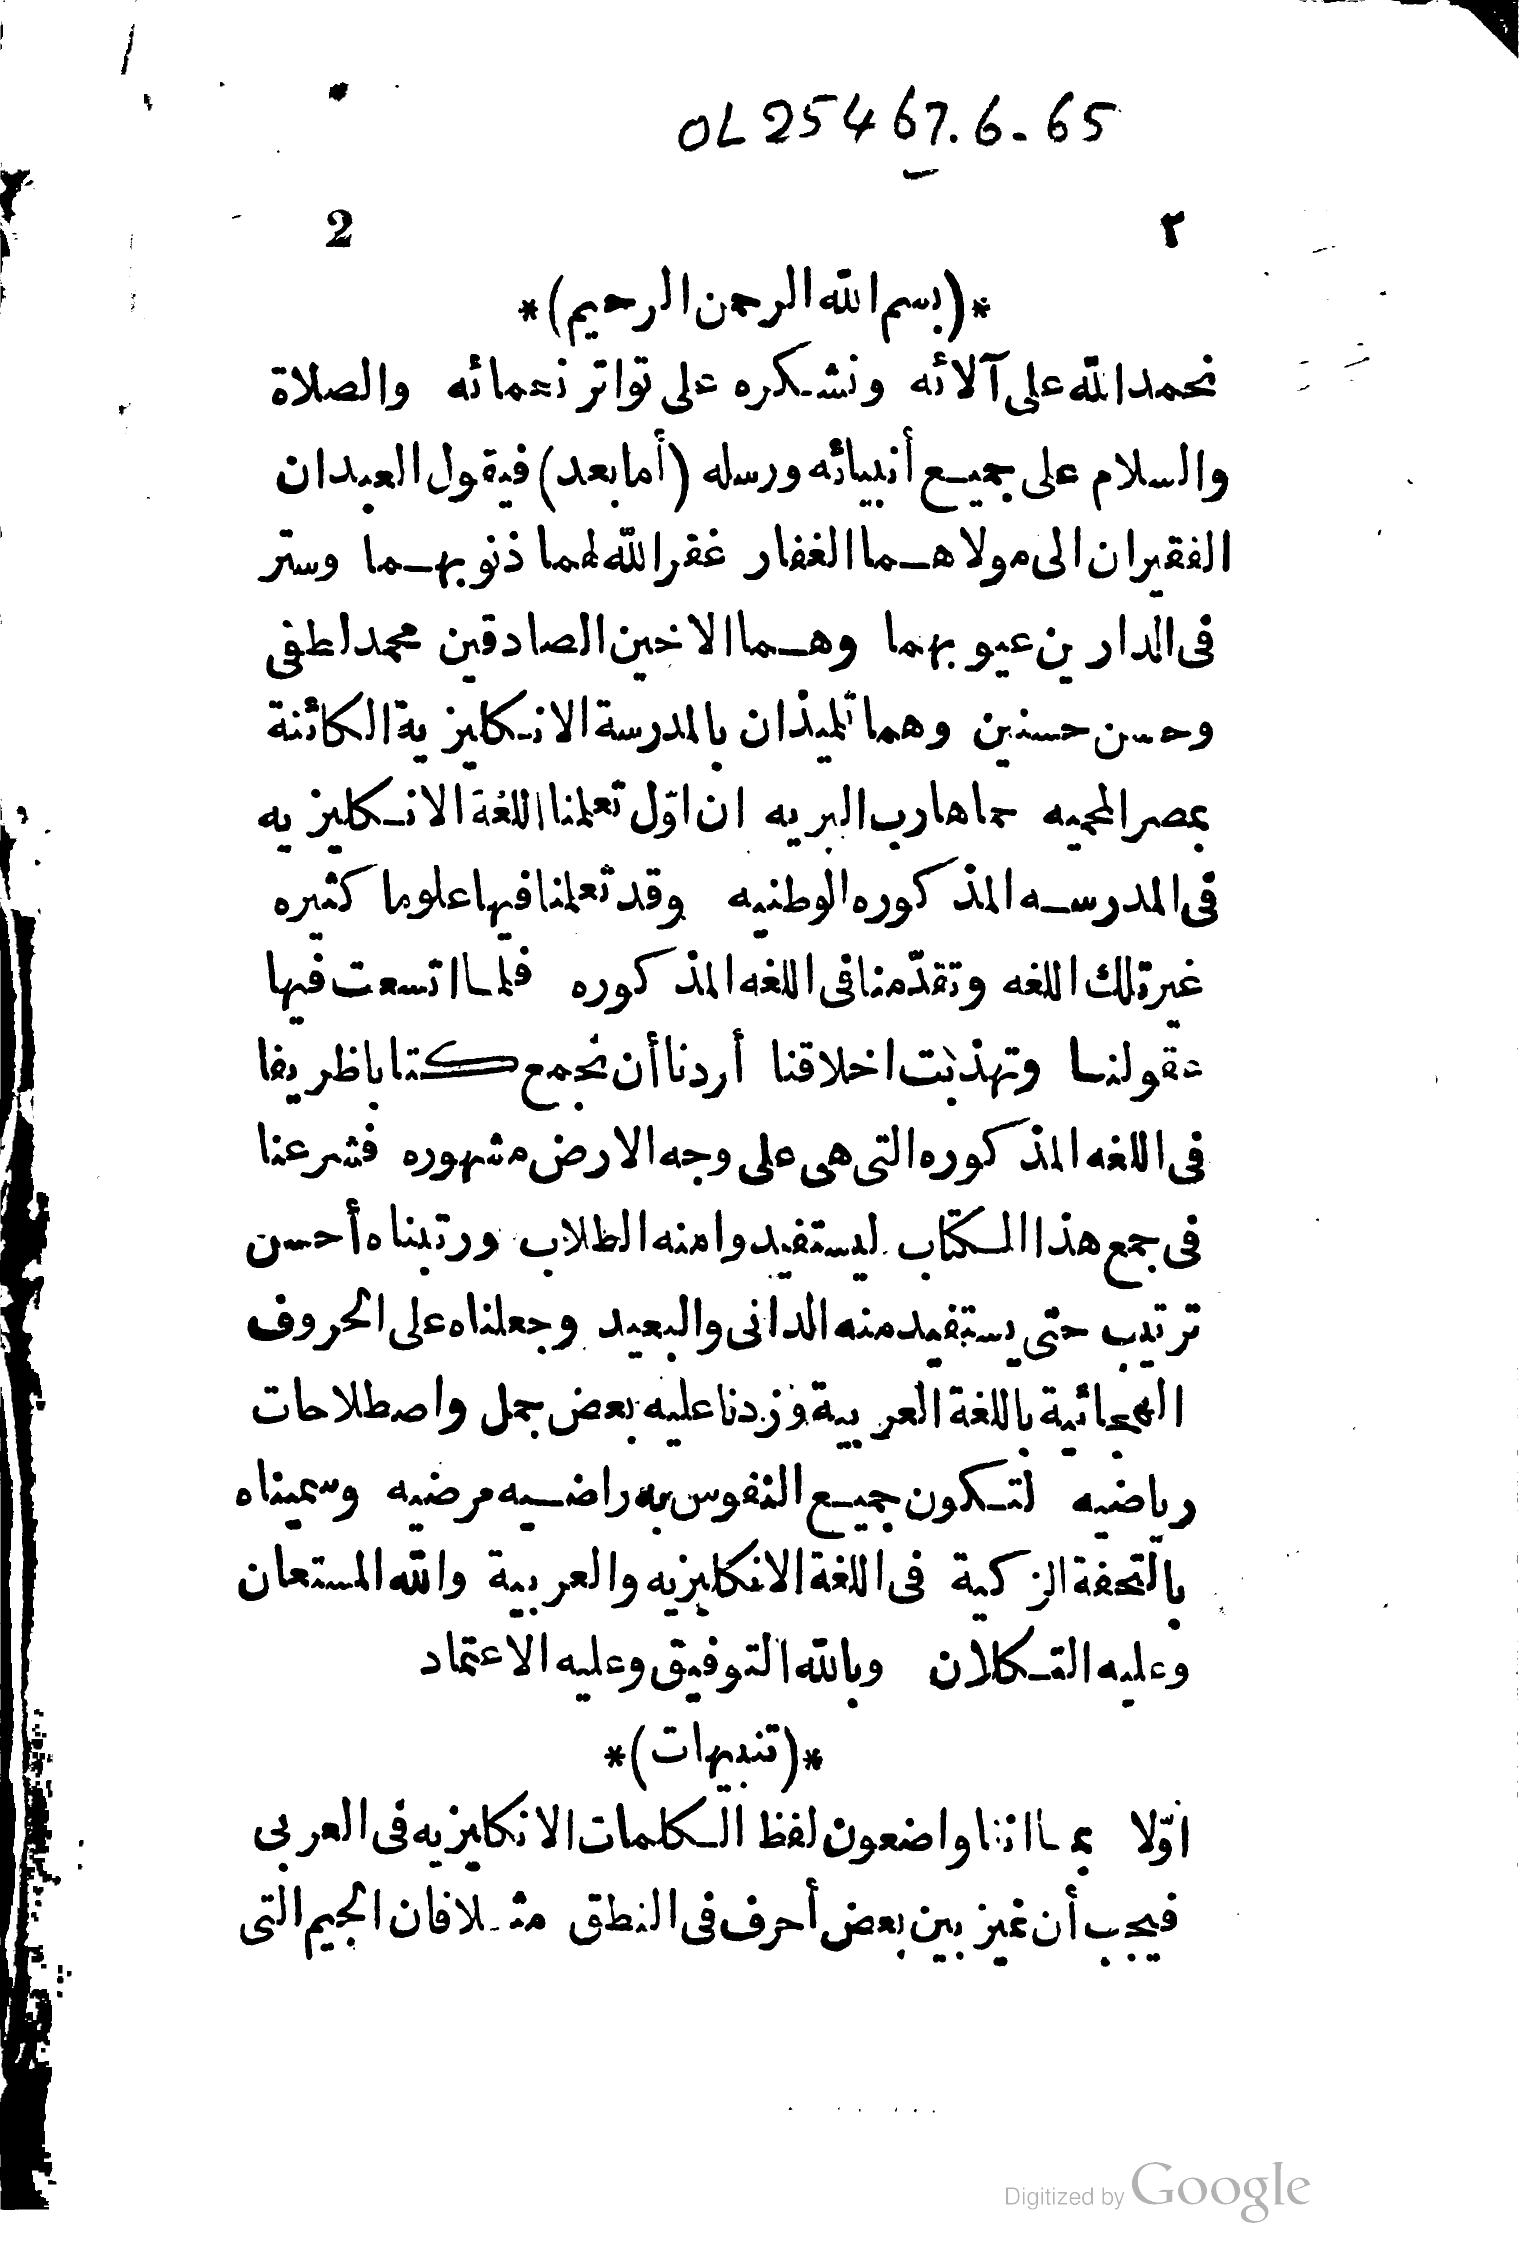 OL 25467.6.65
2 ٢
*(بسم الله الرحمن الرحيم)*
نحمد الله على آلائه ونشكره على تواتر نعمائه والصلاة
والسلام على جميع أنبيائه ورسله (أما بعد) فيقول العبدان
الفقيران الى مولاهما الغفار غفر الله لهما ذنوبهما وستر
فى الدارين عيوبهما وهما الاخين الصادقين محمد لطفى
وحسن حسنين وهما تلميذان بالمدرسة الانكليزية الكائنة
بمصر المحميه حماها رب البريه ان اوّل تعلمنا اللغة الانكليزيه
فى المدرسه المذكوره الوطنيه وقد تعلمنا فيها علوما كثيره
غير تلك اللغه وتقدّمنا فى اللغه المذكوره فلما اتسعت فيها
عقولنا وتهذبت اخلاقنا أردنا أن نجمع كتابا ظريفا
فى اللغه المذكوره التى هى على وجه الارض مشهوره فشرعنا
فى جمع هذا الكتاب ليستفيدوا منه الطلاب ورتبناه أحسن
ترتيب حتى يستفيد منه الدانى والبعيد وجعلناه على الحروف
الهجائية باللغة العربية وزدنا عليه بعض جمل واصطلاحات
رياضيه لتكون جميع النفوس به راضيه مرضيه وسميناه
بالتحفة الزكية فى اللغة الانكليزيه والعربية والله المستعان
وعليه التكلان وبالله التوفيق وعليه الاعتماد
*(تنبيهات)*
اوّلا بما اننا واضعون لفظ الكلمات الانكليزيه فى العربى
فيجب أن نميز بين بعض أحرف فى النطق مثلا فان الجيم التى
Digitized by Google